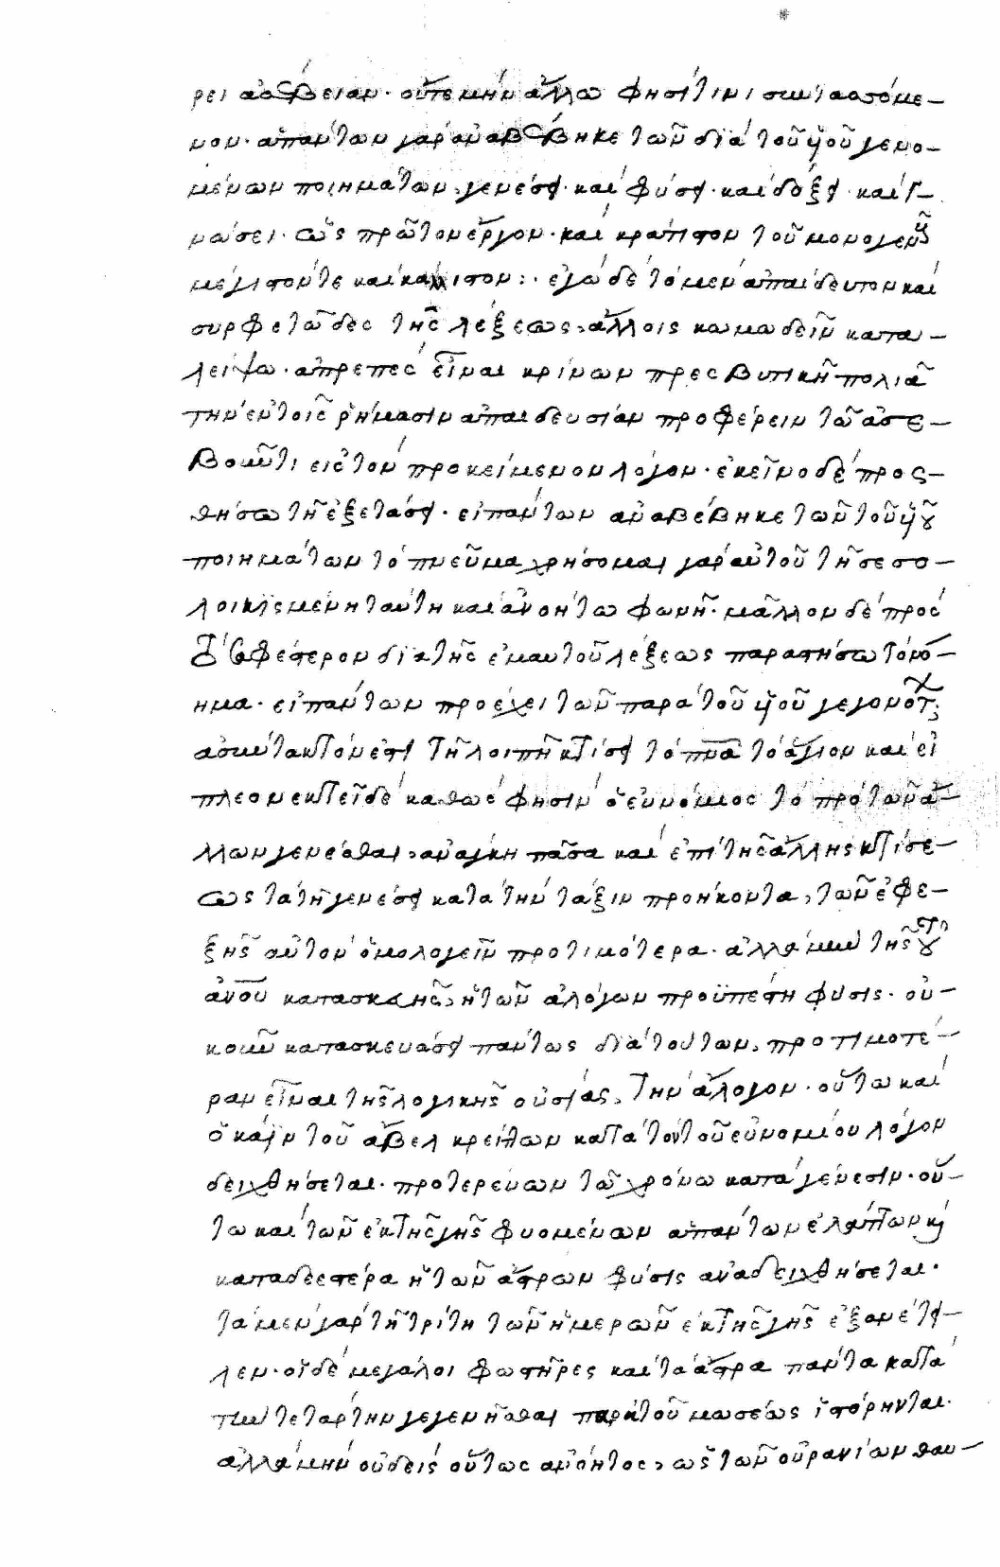 ρει ἀσέβειαν· οὔτε μὴν ἄλλω φησί τινι συντασσόμε-
νον· ἁπάντων γὰρ ἀναβέβηκε τῶν διὰ τοῦ υἱοῦ γενο-
μένων ποιημάτων, γενέσει· καὶ φύσει· καὶ δόξῃ· καὶ γ-
νώσει· ὡς πρῶτον ἔργον· καὶ κράτιστον τοῦ μονογενοῦς
μέγιστόν τε καὶ κάλλιστον:· ἐγὼ δὲ τὸ μὲν ἀπαίδευτον καὶ
συρφετῶδες τῆς λέξεως, ἄλλοις κωμωδεῖν κατα-
λείψω· ἀπρεπὲς εἶναι κρίνων πρεσβυτικῆ πολιᾶ
τὴν ἐν τοῖς ῥήμασιν ἀπαιδευσίαν προφέρειν τῶ ἀσε-
βοῦντι εἰς τὸν προκείμενον λόγον· ἐκεῖνο δὲ προς-
θήσω τῆ ἐξετάσει· εἰ πάντων ἀναβέβηκε τῶν τοῦ υἱοῦ
ποιημάτων τὸ πνεῦμα χρήσομαι γὰρ αὐτοῦ τῆ σεσο-
λοικισμένη ταύτη καὶ ἀνοήτω φωνῆ· μᾶλλον δὲ πρὸς
τὸ σαφέστερον διὰ τῆς ἐμαυτοῦ λέξεως παραστήσω τὸ νό-
ημα· εἰ πάντων προέχει τῶν παρὰ τοῦ υἱοῦ γεγονότων,
ἀσύντακτόν ἐστι τῆ λοιπῆ κτίσει τὸ πνα τὸ ἅγιον καὶ εἰ
πλεονεκτεῖ δὲ καθώς φησιν ὁ εὐνόμιος τὸ πρὸ τῶν ἄ-
λλων γενέσθαι, ἀνάγκη πᾶσα καὶ ἐπὶ τῆς ἄλλης κτίσε-
ως τὰ τῆ γενέσει κατὰ τὴν τάξιν προήκοντα, τῶν ἐφε-
ξῆς αὐτὸν ὁμολογεῖν προτιμότερα· ἀλλὰ μὴν τῆς τοῦ
ἀνου κατασκευῆς, ἡ τῶν ἀλόγων προϋπέστη φύσις· οὐ-
κοῦν κατασκευάσει πάντως διὰ τούτων, προτιμοτέ-
ραν εἶναι τῆς λογικῆς οὐσίας, τὴν ἄλογον· οὕτω καὶ
ὁ κάϊν τοῦ ἄβελ κρείττων κατὰ τὸν τοῦ εὐνομίου λόγον
δειχθήσεται· προτερεύων τῶ χρόνω κατὰ γένεσιν· οὕ-
τω καὶ τῶν ἐκ τῆς γῆς φυομένων ἁπάντων ἐλάττων καὶ
καταδεεστέρα ἡ τῶν ἄστρων φύσις ἀναδειχθήσεται·
τὰ μὲν γὰρ τῆ τρίτη τῶν ἡμερῶν ἐκ τῆς γῆς ἐξανέτει-
λεν· οἱ δὲ μεγάλοι φωστῆρες καὶ τὰ ἄστρα πάντα κατὰ
τὴν τετάρτην γεγενῆσθαι παρὰ τοῦ μωσέως ἱστόρηνται·
ἀλλὰ μὴν οὐδεὶς οὕτως ἀνόητος, ὡς τῶν οὐρανίων θαυ-